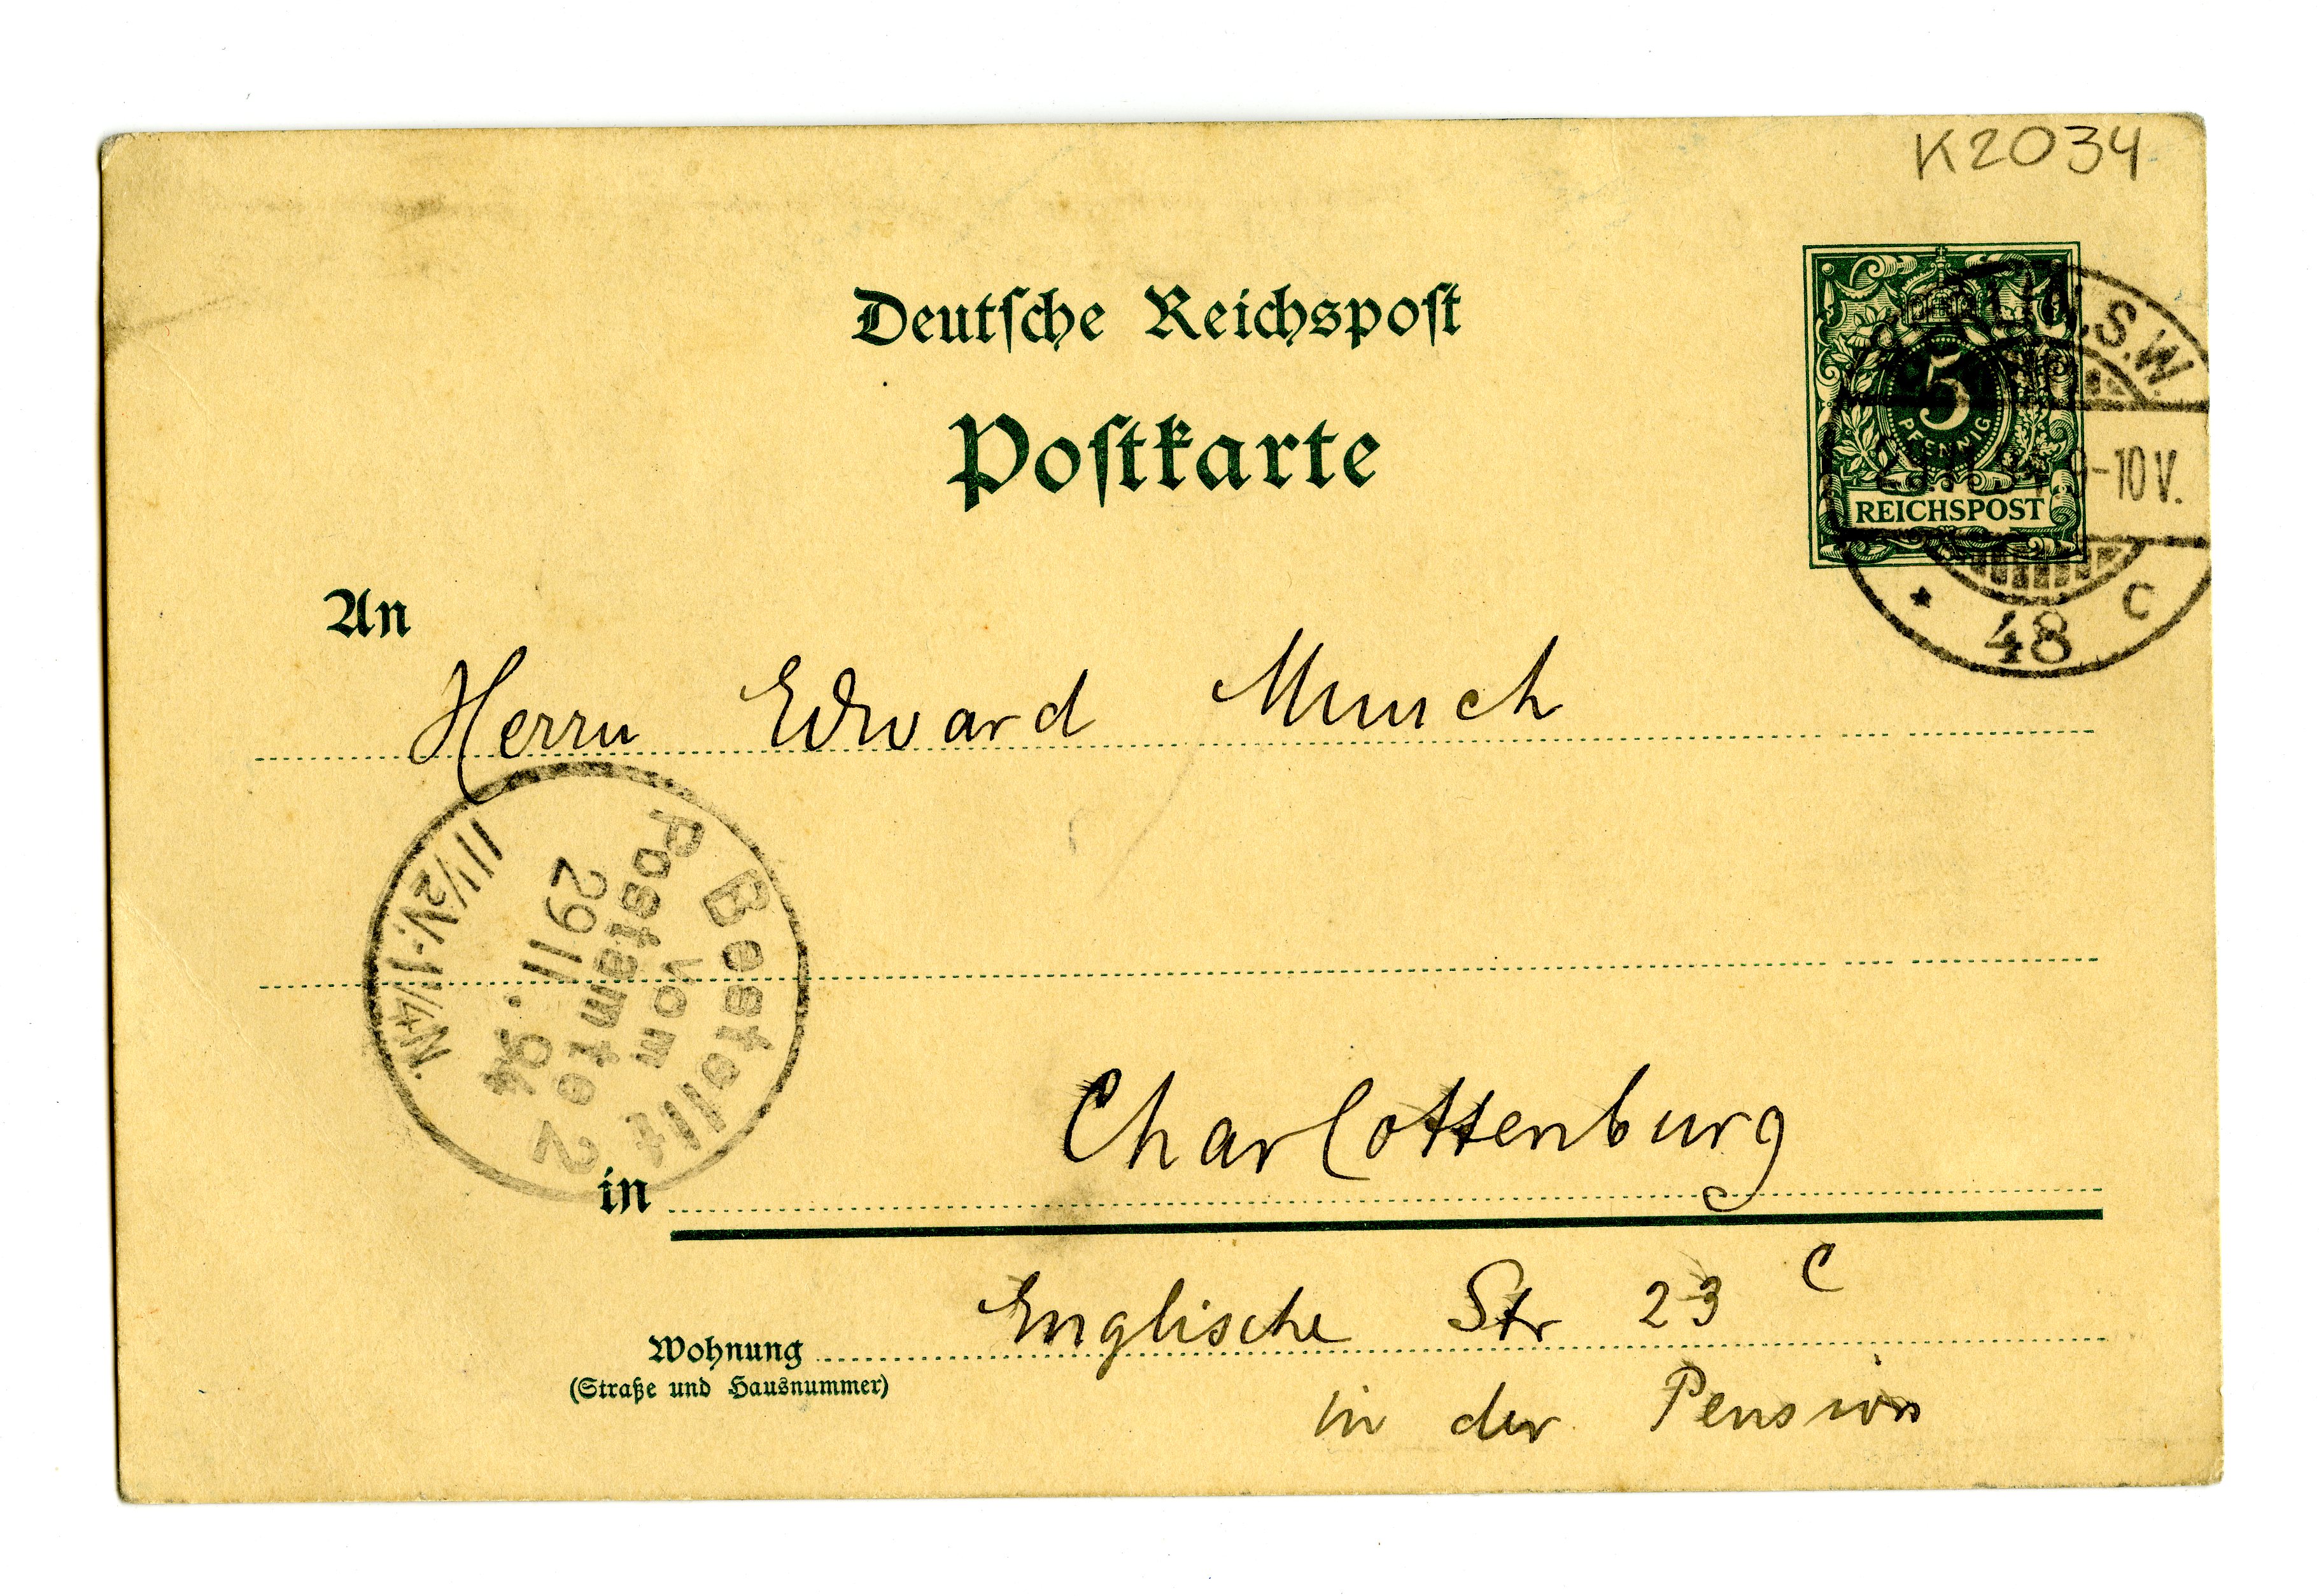 K2034
Deutsche Reichspost
Postkarte
5
PFENNIG
REICHSPOST
S.W.
9-10 V.
* 48 c
An
Herrn Edvard Munch
Bestellt
vom
Postamte 2
29 11. 94
11 1/2 V.-1 1/4 N.
in Charlottenburg
Wohnung Englische Str 23 c
(Straße und Hausnummer)
in der Pension